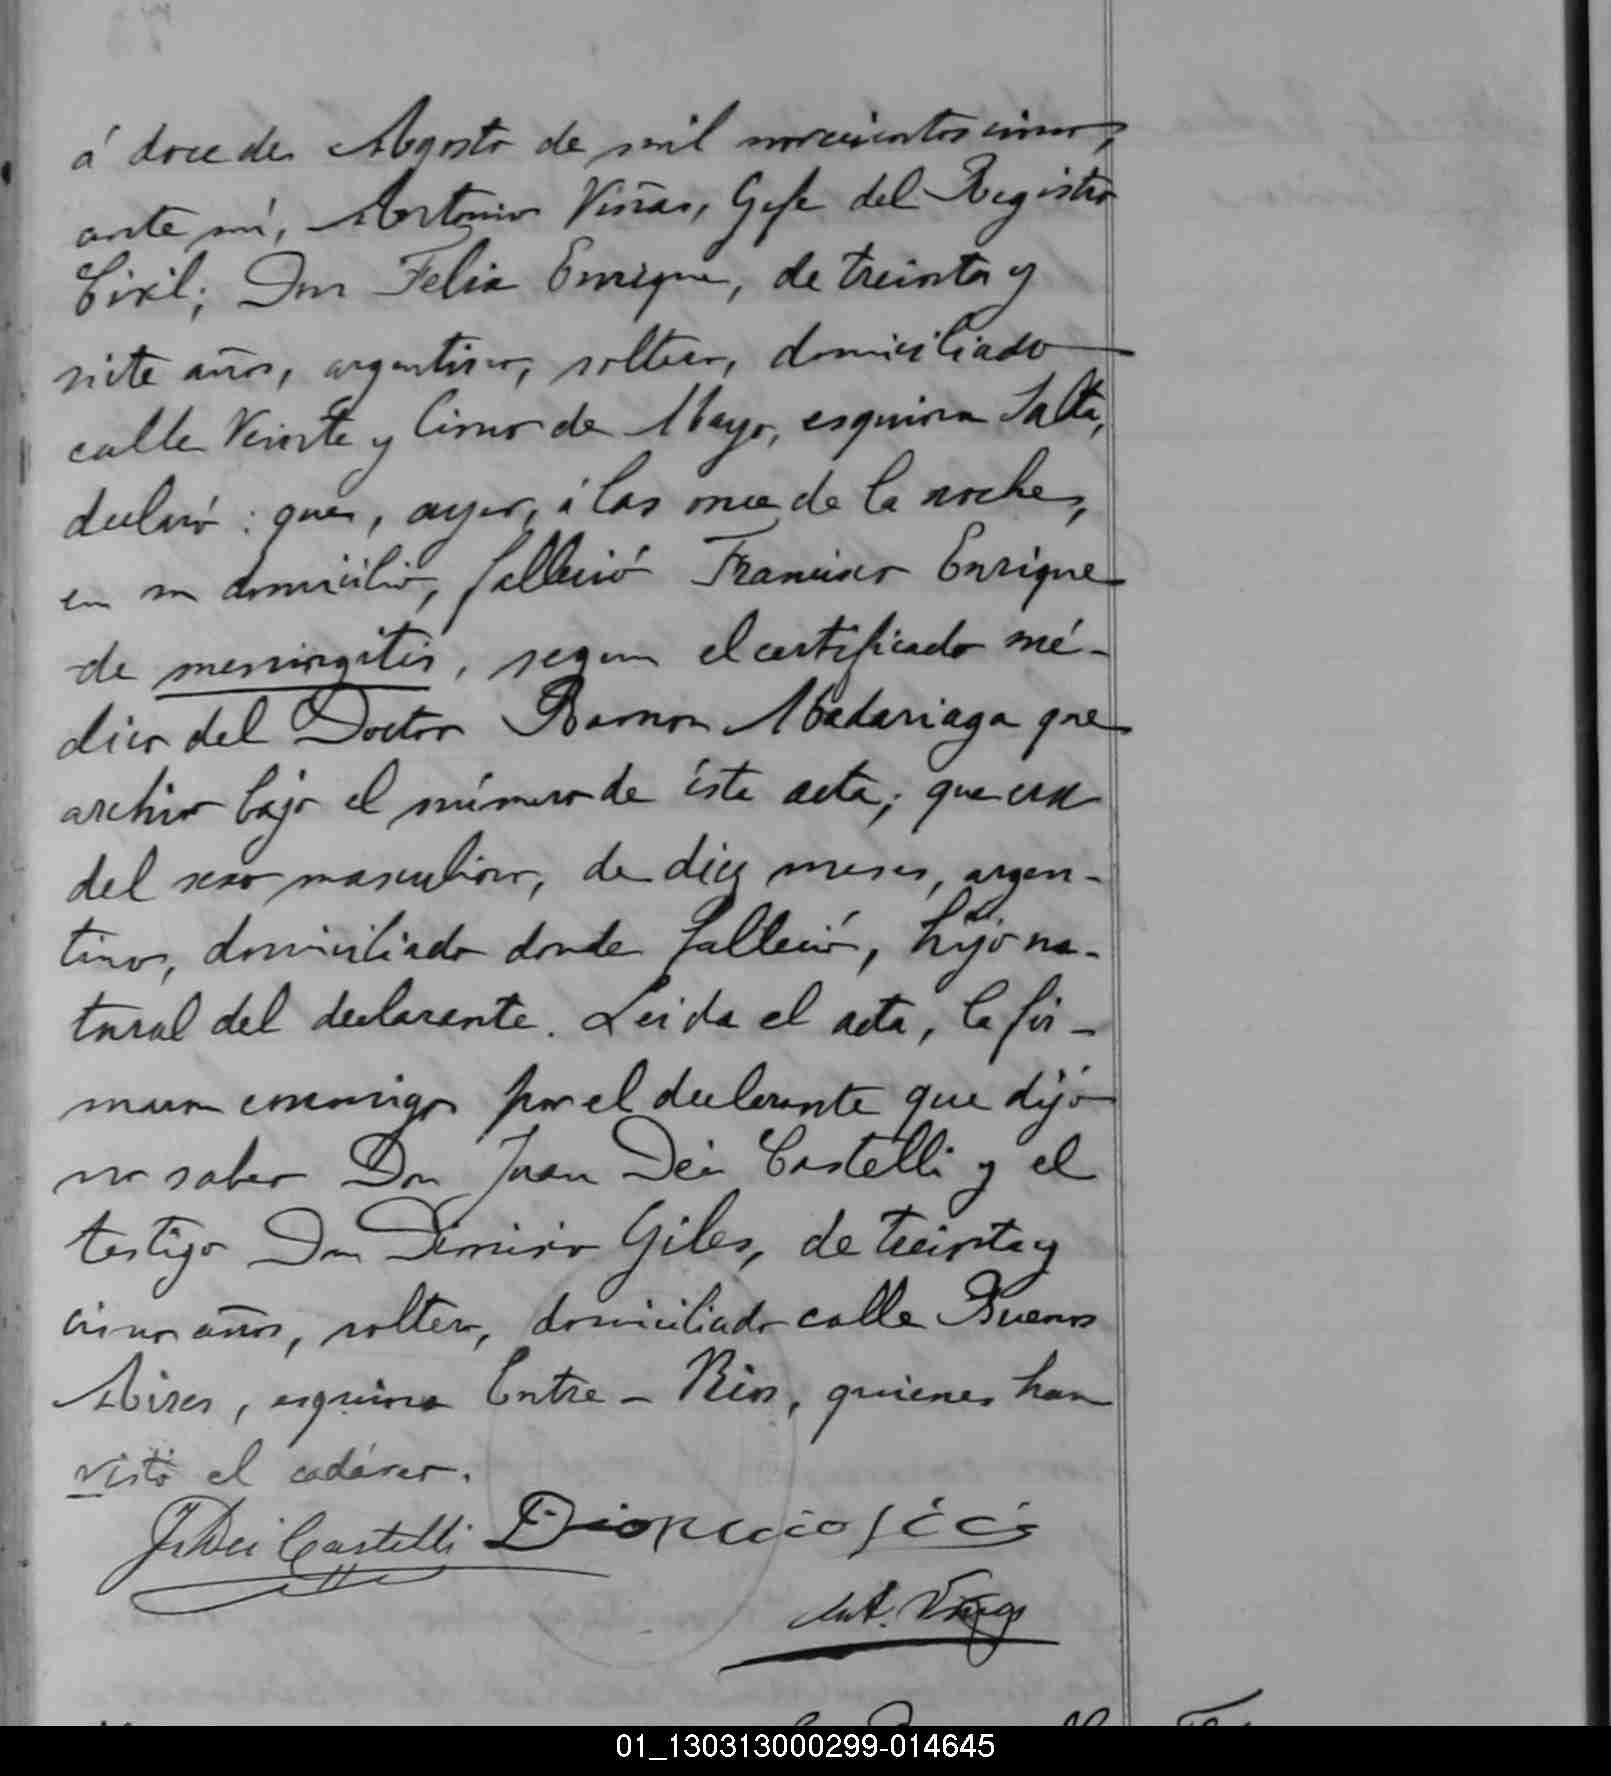 á doce de Agosto de mil novecientos cinco,
ante mí, Antonio Viñas, Gefe del Registro
Civil; Don Felix Enrique, de treinta y
siete años, argentino, soltero, domiciliado
calle Veinte y Cinco de Mayo, esquina Salta,
declaró: que, ayer, á las once de la noche,
en su domicilio, falleció Francisco Enrique
de meningitis, segun el certificado mé-
dico del Doctor Ramon Madariaga que
archivo bajo el número de ésta acta; que era
del sexo masculino, de diez meses, argen-
tino, domiciliado donde falleció, hijo na-
tural del declarante. Leida el acta, la fir-
maron conmigo por el declarante que dijó
no saber Don Juan Dei Castelli y el
testigo Don Dionisio Giles, de treinta y
cinco años, soltero, domiciliado calle Buenos
Aires, esquina Entre-Rios, quienes han
visto el cadáver.
J. Dei Castelli Dionicio
Ant. Viñas
01_130313000299-014645